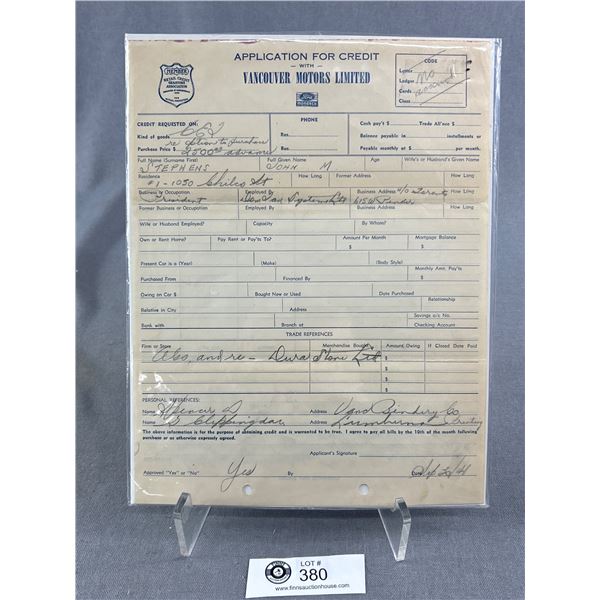 APPLICATION FOR CREDIT
— WITH —
VANCOUVER MOTORS LIMITED
MEMBER
RETAIL CREDIT
GRANTORS
ASSOCIATION
FORD
MONARCH
CODE
Letter
Ledger
Cards
Class
No
account
CREDIT REQUESTED ON:
PHONE
Cash pay't $ Trade All'nce $
Kind of goods
Res.
Balance payable in installments or
re option to purchase
Purchase Price $ 2500.00 advance
Bus.
Payable monthly at $ per month.
Full Name (Surname First) Full Given Name Age Wife's or Husband's Given Name
STEPHENS JOHN M
Residence How Long Former Address How Long
#1-1050 Chilco St
Business or Occupation Employed By Business Address How Long
President 615 W Pender
Former Business or Occupation Employed By Business Address How Long
Wife or Husband Employed? Capacity By Whom?
Own or Rent Home? Pay Rent or Pay'ts To? Amount Per Month Mortgage Balance
$ $
Present Car is a (Year) (Make) (Body Style)
Monthly Amt. Pay'ts
Purchased From Financed By $
Owing on Car $ Bought New or Used Date Purchased
Relationship
Relative in City Address
Savings a/c No.
Bank with Branch at Checking Account
TRADE REFERENCES
Firm or Store Merchandise Bought Amount Owing If Closed Date Paid
Also, and re — Dura Stone Ltd $
$
$
$
PERSONAL REFERENCES:
Name Spencer Address Vanc Bindery Co
Name Address
The above information is for the purpose of obtaining credit and is warranted to be true. I agree to pay all bills by the 10th of the month following
purchase or as otherwise expressly agreed.
Applicant's Signature
Approved "Yes" or "No" Yes By Date
LOT #
380
www.finnsauctionhouse.com